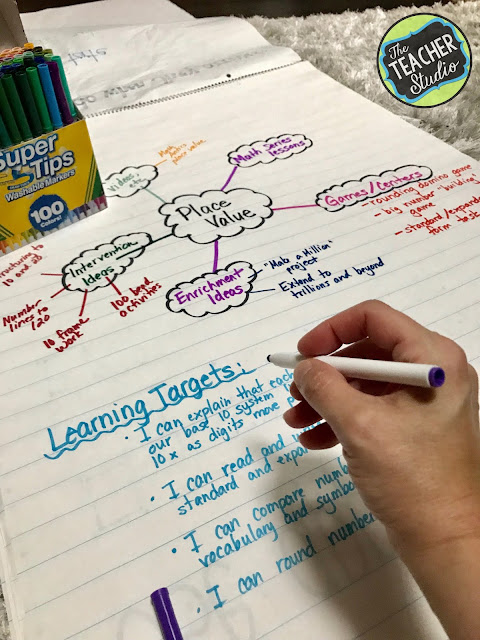 The
TEACHER
Studio
Super
Tips
Washable Markers
100
Colors!
Videos,
etc
place value
Math Series
lessons
Place
Value
Games/Centers
- rounding domino game
- big number "building"
game
- standard/expanded
form task
Intervention
Ideas
10 and 20
Number
lines to
120
10 frame
work
100 bead
activities
Enrichment
Ideas
"Make a Million"
project
Extend to
trillions and beyond
Learning Targets:
• I can explain that each
our base 10 system
10 x as digits move
• I can read and
standard and
• I can compare
vocabulary and
• I can round